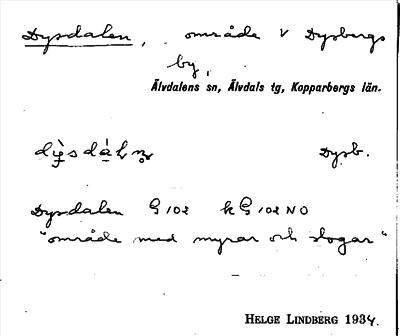 Dysdalen, område V Dysbergs
by,
Älvdalens sn, Älvdals tg, Kopparbergs län.
Dysb.
Dysdalen G 102 k G 102 NO
"område med myrar och slogar"
HELGE LINDBERG 1934.